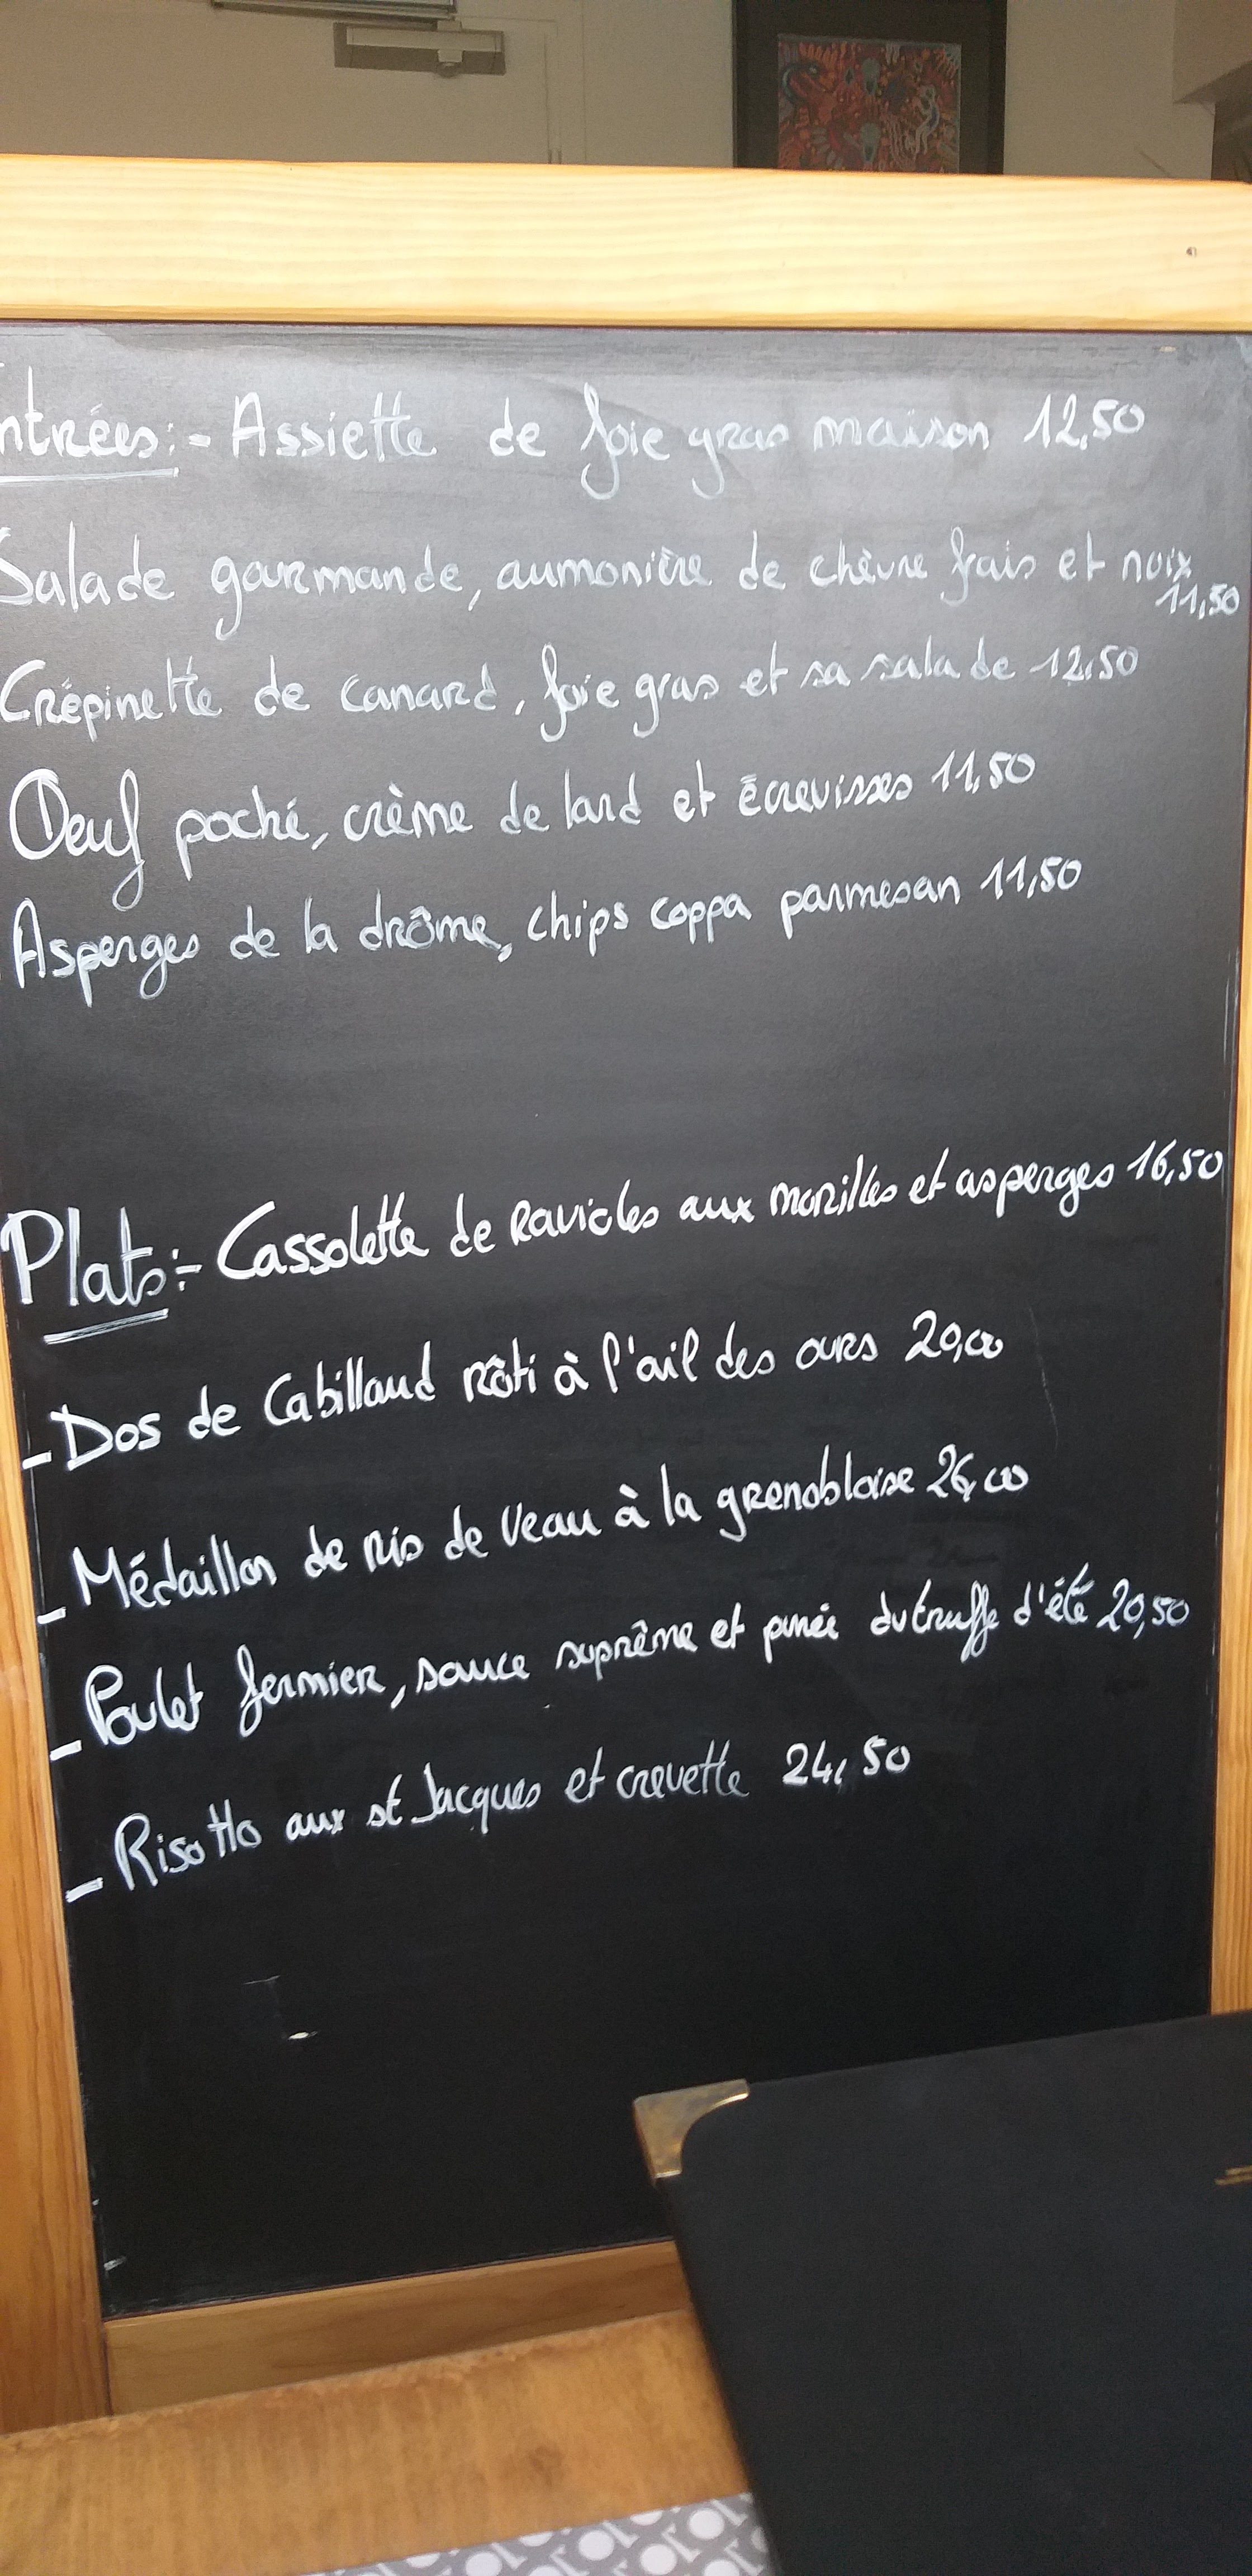 ntrées:- Assiette de foie gras maison 12,50
Salade gourmande, aumonière de chèvre frais et noix
11,50
Crépinette de canard, foie gras et sa salade 12,50
Oeuf poché, crème de lard et écrevisses 11,50
Asperges de la drôme, chips coppa parmesan 11,50
Plats:- Cassolette de Ravioles aux morilles et asperges 16,50
- Dos de Cabillaud rôti à l'ail des ours 20,00
- Médaillon de ris de veau à la grenobloise 26,00
- Poulet fermier, sauce suprême et purée du truffe d'été 20,50
- Risotto aux st Jacques et crevette 24,50